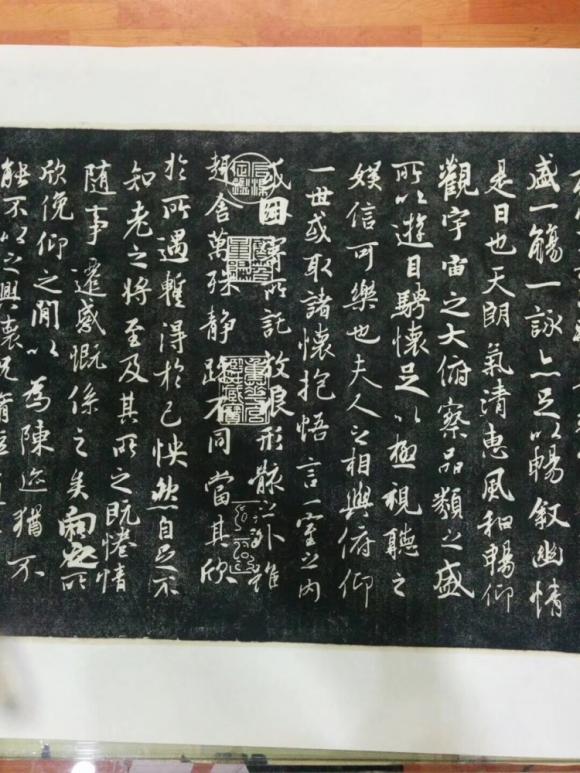 盛一觴一詠亦足以暢敘幽情
是日也天朗氣清惠風和暢仰
觀宇宙之大俯察品類之盛
所以遊目騁懷足以極視聽之
娛信可樂也夫人之相與俯仰
一世或取諸懷抱悟言一室之內
或因寄所託放浪形骸之外雖
趣舍萬殊靜躁不同當其欣
於所遇暫得於己怏然自足不
知老之將至及其所之既惓情
隨事遷感慨係之矣向之所
欣俛仰之閒以為陳迹猶不
能不以之興懷況脩短